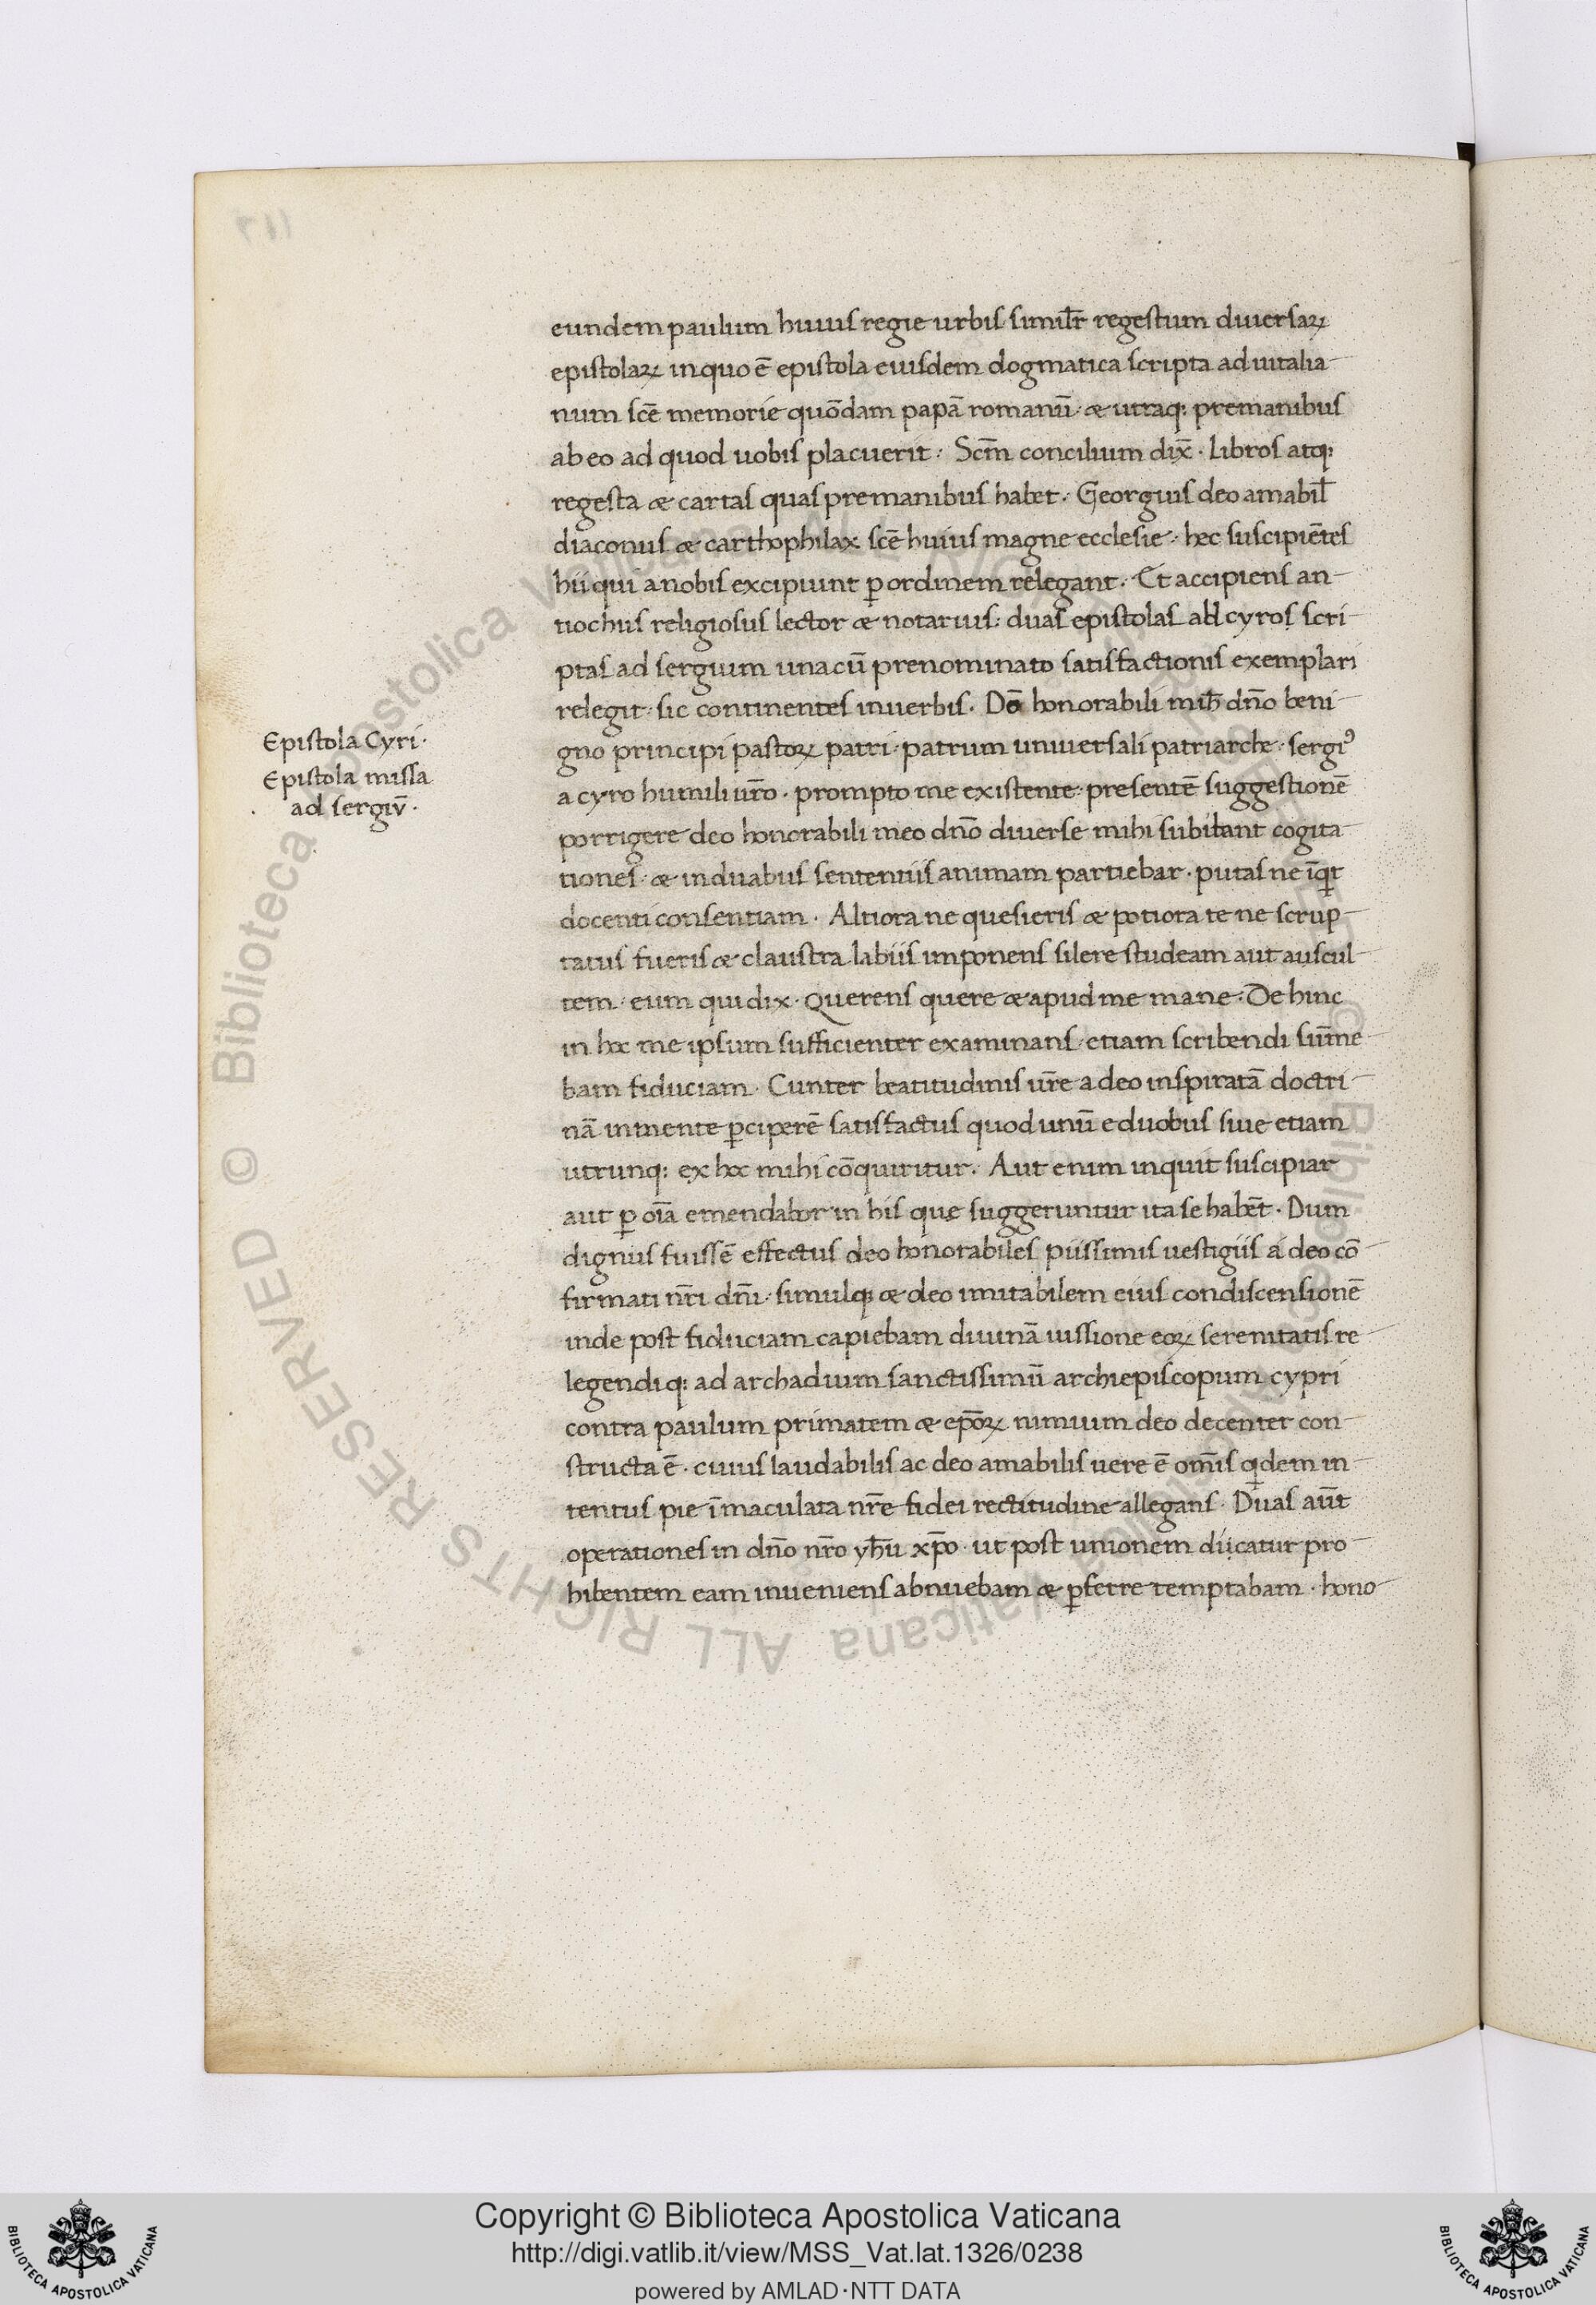 eundem paulum huius regie urbis simil̄r regestum diuersaꝝ
epistolaꝝ in quo ē epistola eiusdem dogmatica scripta ad uitalia
num sc̄e memorie quōdam papā romanū· & utraq; premanibus
ab eo ad quod uobis placuerit· Sc̄m concilium dix̄· Libros atq;
regesta & cartas quas premanibus habet· Georgius deo amabil̄
diaconus & carthophilax sc̄e huius magne ecclesie· hec suscipiētes
hii qui a nobis excipiunt ꝑ ordinem relegant· Et accipiens an
tiochus religiosus lector & notarius: duas epistolas abd cyros scri
ptas ad sergium una cū prenominato satisfactionis exemplari
relegit· sic continentes in uerbis· Deo honorabili mih̄ dn̄o beni
Epistola Cyri·
Epistola missa
ad sergiū·
gno principi pastoꝝ patri· patrum uniuersali patriarche· sergiꝰ
a cyro humili ur̄o· prompto me existente· presentē suggestionē
porrigere deo honorabili meo dn̄o diuerse mihi subibant cogita
tiones· & in duabus sententiis animam partiebar· putas ne īqt
docenti consentiam· Altiora ne quesieris & potiora te ne scrup
tatus fueris & claustra labiis imponens silere studeam aut auscul
tem· eum qui dix· Querens quere & apud me mane· De hinc
in hoc me ipsum sufficienter examinans· etiam scribendi sūme
bam fiduciam· Cunter beatitudinis ur̄e a deo inspiratā doctri
nā in mente ꝑciperē satisfactus quod unū e duobus siue etiam
utrunq; ex hoc mihi cōquiritur· Aut enim inquit suscipiar
aut ꝑ oīa emendabor in his que suggeruntur ita se habēt· Dum
dignus fuissē effectus deo honorabiles piissimis uestigiis a deo cō
firmati nr̄i dn̄i· simulq; & deo imitabilem eius condiscensionē
inde post fiduciam capiebam diuinā iussione eoꝝ serenitatis re
legendi q; ad archadium sanctissimū archiepiscopum cypri
contra paulum primatem & ep̄oꝝ nimium deo decenter con
structa ē· cuius laudabilis ac deo amabilis uere ē om̄is qdem in
tentus pie īmaculata nr̄e fidei rectitudine allegans· Duas aūt
operationes in dn̄o nr̄o yhū xp̄o· ut post unionem dicatur pro
hibentem eam inueniens abnuebam & ꝑferre temptabam· hono
Copyright © Biblioteca Apostolica Vaticana
http://digi.vatlib.it/view/MSS_Vat.lat.1326/0238
powered by AMLAD·NTT DATA
BIBLIOTECA APOSTOLICA VATICANA
BIBLIOTECA APOSTOLICA VATICANA
© Biblioteca Apostolica Vaticana ALL RIGHTS RESERVED